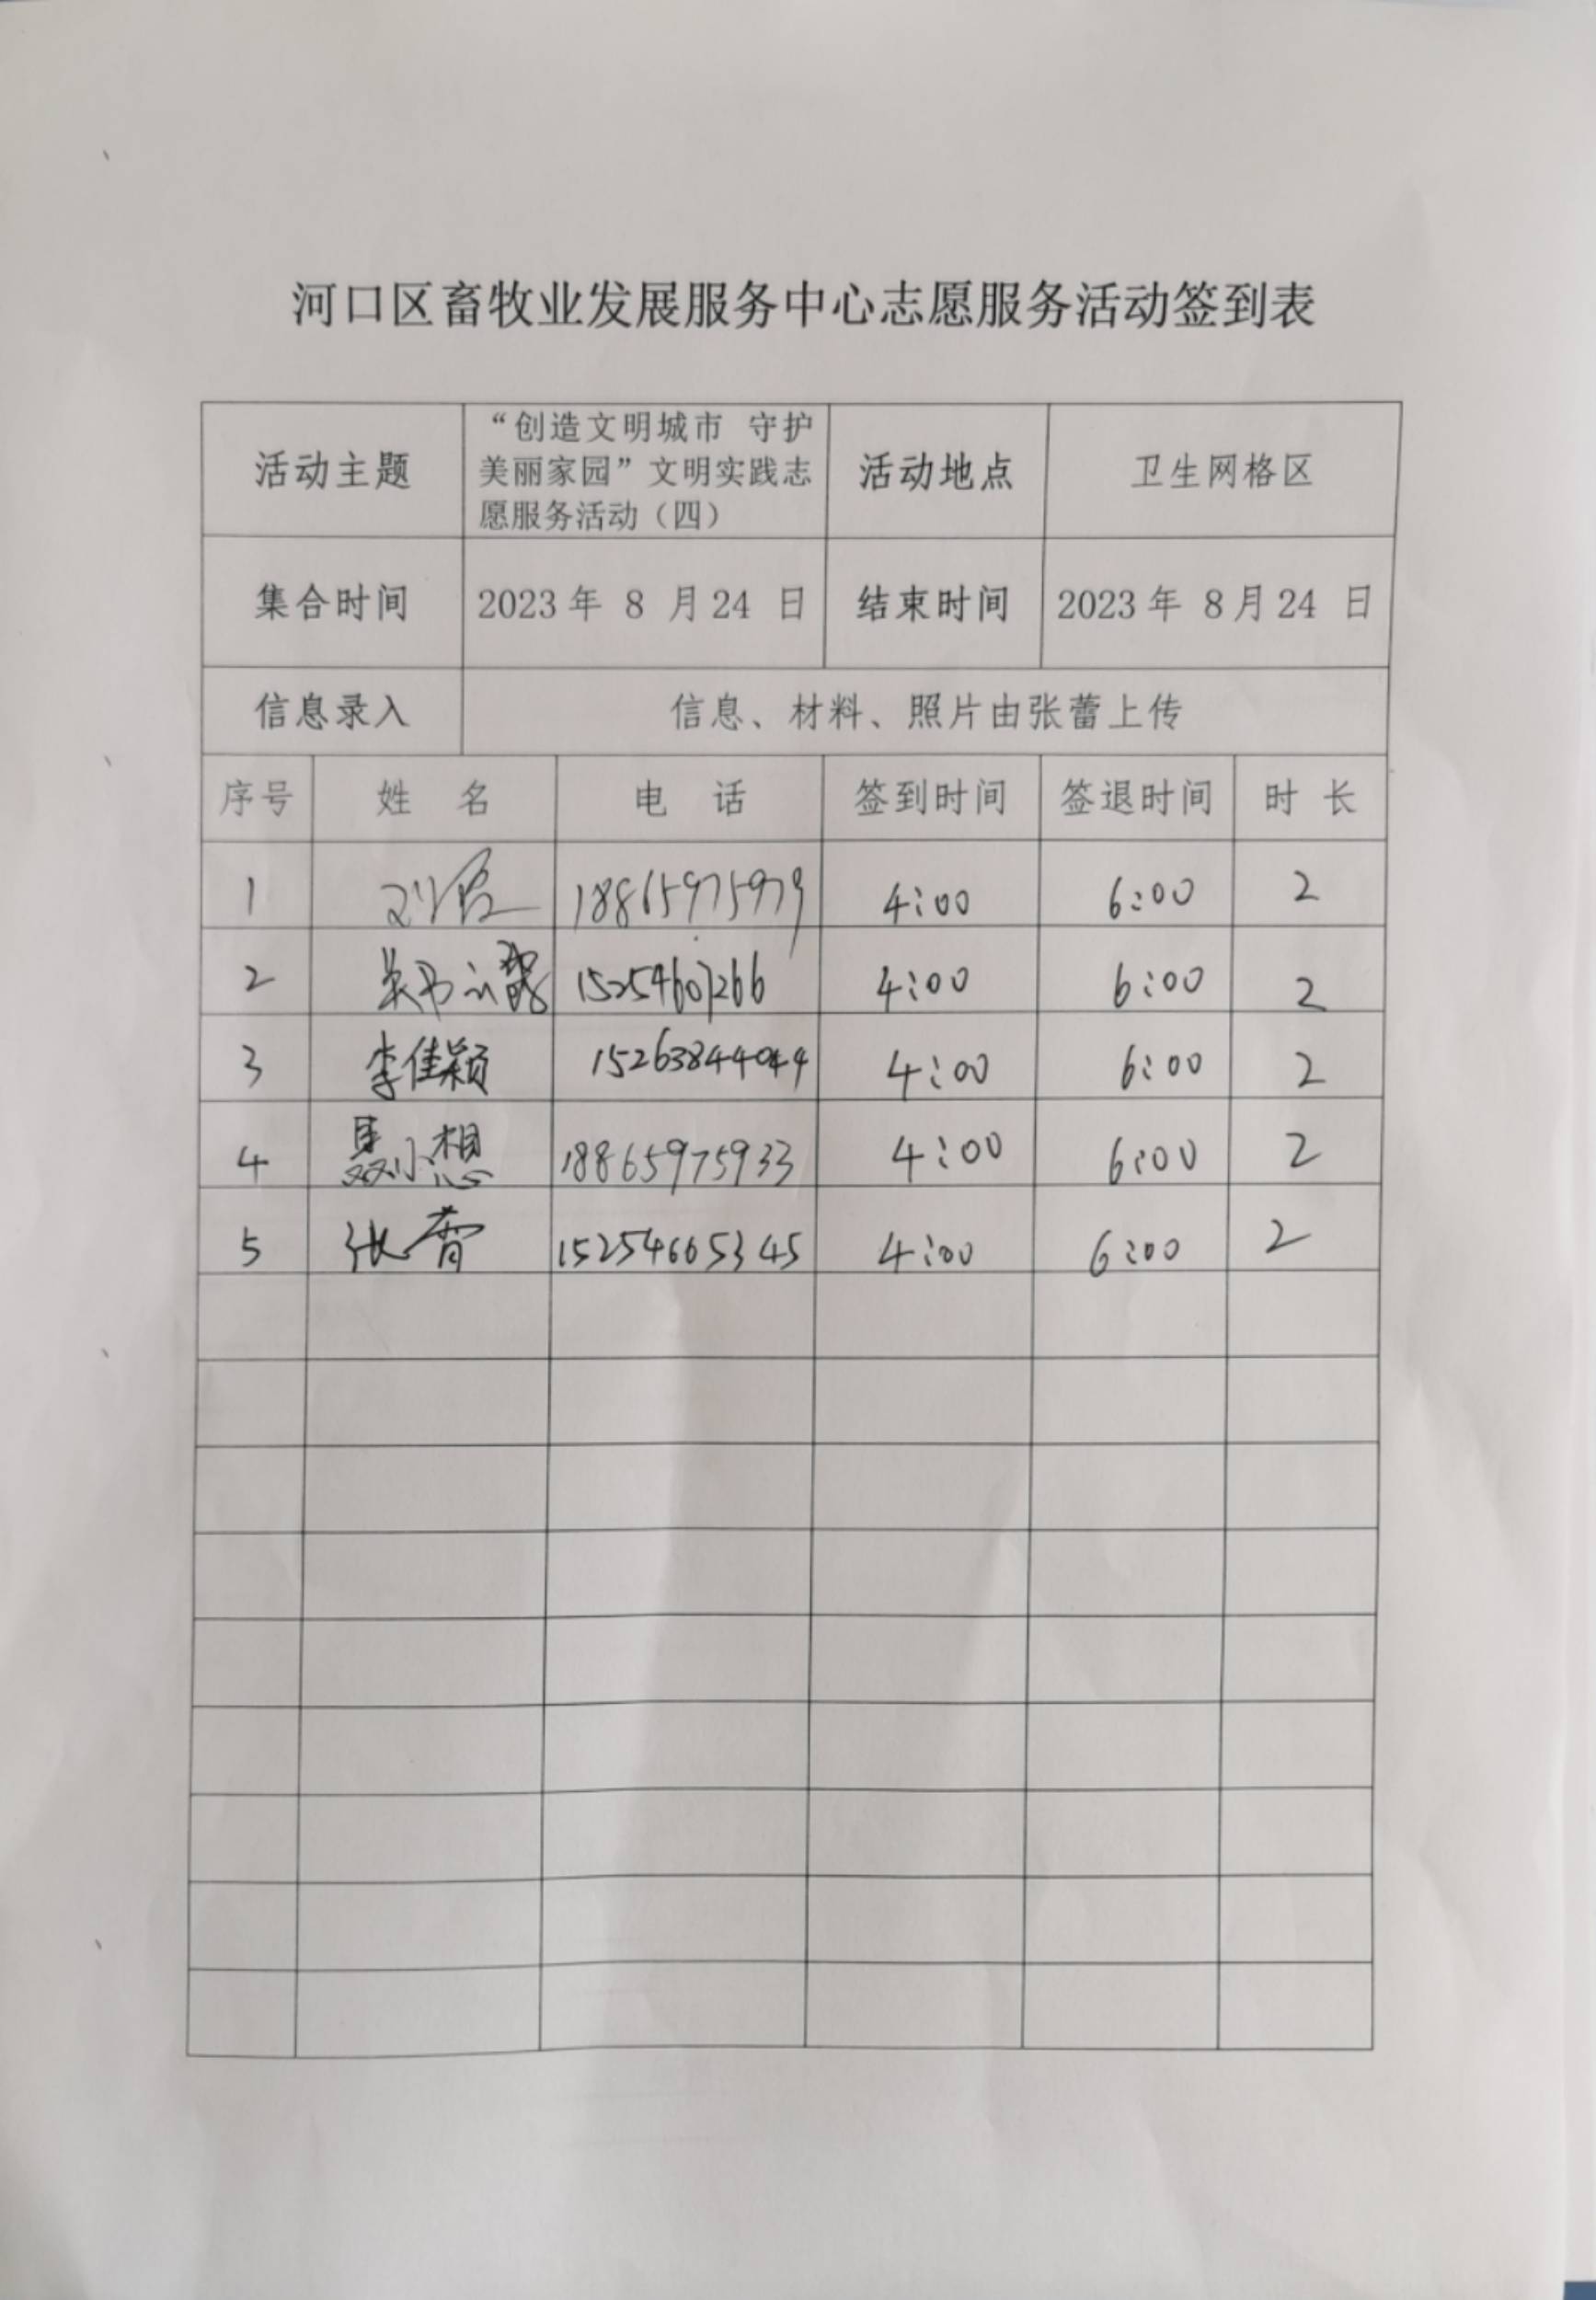 河口区畜牧业发展服务中心志愿服务活动签到表
活动主题
“创造文明城市 守护
美丽家园”文明实践志
愿服务活动（四）
活动地点
卫生网格区
集合时间 2023年 8 月24 日 结束时间 2023年 8月24 日
信息录入 信息、材料、照片由张蕾上传
序号 姓 名 电 话 签到时间 签退时间 时 长
1 18865975979 4:00 6:00 2
2 15254607266 4:00 6:00 2
3 李佳颖 15263844044 4:00 6:00 2
4 聂小想 18865975933 4:00 6:00 2
5 张蕾 15254665345 4:00 6:00 2